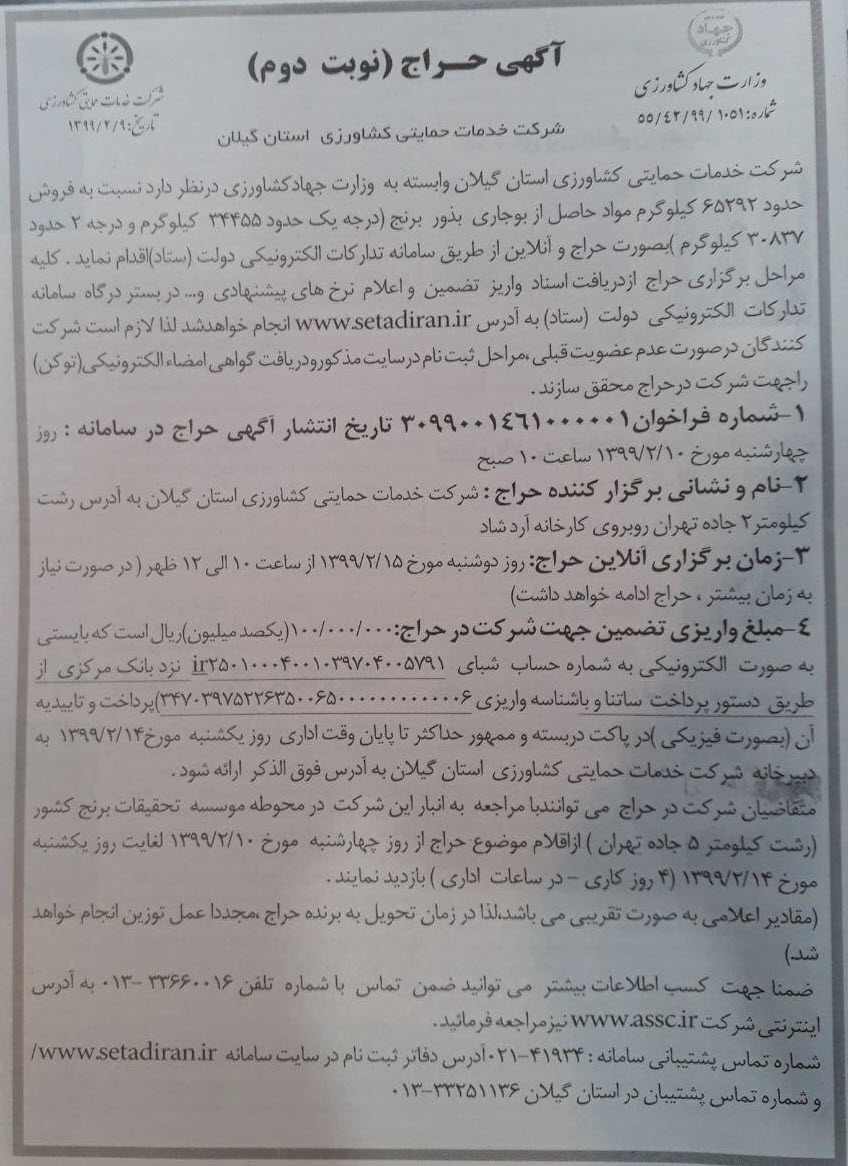 جهاد کشاورزی
وزارت جهاد کشاورزی
شماره: ۵۵/۴۲/۹۹/۱۰۵۱
آگهی حراج (نوبت دوم)
شرکت خدمات حمایتی کشاورزی استان گیلان
شرکت خدمات حمایتی کشاورزی
تاریخ: ۱۳۹۹/۲/۹
شرکت خدمات حمایتی کشاورزی استان گیلان وابسته به وزارت جهادکشاورزی درنظر دارد نسبت به فروش
حدود ۶۵۲۹۲ کیلوگرم مواد حاصل از بوجاری بذور برنج (درجه یک حدود ۳۴۴۵۵ کیلوگرم و درجه ۲ حدود
۳۰۸۳۷ کیلوگرم )بصورت حراج و آنلاین از طریق سامانه تدارکات الکترونیکی دولت (ستاد)اقدام نماید . کلیه
مراحل برگزاری حراج ازدریافت اسناد واریز تضمین و اعلام نرخ های پیشنهادی و... در بستر درگاه سامانه
تدارکات الکترونیکی دولت (ستاد) به آدرس www.setadiran.ir انجام خواهدشد لذا لازم است شرکت
کنندگان درصورت عدم عضویت قبلی ،مراحل ثبت نام درسایت مذکورودریافت گواهی امضاء الکترونیکی(توکن)
راجهت شرکت درحراج محقق سازند .
۱-شماره فراخوان۳۰۹۹۰۰۱۴۶۱۰۰۰۰۰۱ تاریخ انتشار آگهی حراج در سامانه : روز
چهارشنبه مورخ ۱۳۹۹/۲/۱۰ ساعت ۱۰ صبح
۲-نام و نشانی برگزار کننده حراج : شرکت خدمات حمایتی کشاورزی استان گیلان به آدرس رشت
کیلومتر۲ جاده تهران روبروی کارخانه آرد شاد
۳-زمان برگزاری آنلاین حراج: روز دوشنبه مورخ ۱۳۹۹/۲/۱۵ از ساعت ۱۰ الی ۱۲ ظهر ( در صورت نیاز
به زمان بیشتر ، حراج ادامه خواهد داشت)
۴-مبلغ واریزی تضمین جهت شرکت در حراج:۱۰۰/۰۰۰/۰۰۰(یکصد میلیون)ریال است که بایستی
به صورت الکترونیکی به شماره حساب شبای ir۲۵۰۱۰۰۰۴۰۰۱۰۳۹۷۰۴۰۰۵۷۹۱ نزد بانک مرکزی از
طریق دستور پرداخت ساتنا و باشناسه واریزی ۳۴۷۰۳۹۷۵۲۲۶۳۵۰۰۶۵۰۰۰۰۰۰۰۰۰۰۰۰۶)پرداخت و تاییدیه
آن (بصورت فیزیکی )در پاکت دربسته و ممهور حداکثر تا پایان وقت اداری روز یکشنبه مورخ۱۳۹۹/۲/۱۴ به
دبیرخانه شرکت خدمات حمایتی کشاورزی استان گیلان به آدرس فوق الذکر ارائه شود .
متقاضیان شرکت در حراج می توانندبا مراجعه به انبار این شرکت در محوطه موسسه تحقیقات برنج کشور
(رشت کیلومتر ۵ جاده تهران ) ازاقلام موضوع حراج از روز چهارشنبه مورخ ۱۳۹۹/۲/۱۰ لغایت روز یکشنبه
مورخ ۱۳۹۹/۲/۱۴ (۴ روز کاری – در ساعات اداری ) بازدید نمایند .
(مقادیر اعلامی به صورت تقریبی می باشد،لذا در زمان تحویل به برنده حراج ،مجددا عمل توزین انجام خواهد
شد.)
ضمنا جهت کسب اطلاعات بیشتر می توانید ضمن تماس با شماره تلفن ۳۳۶۶۰۰۱۶ –۰۱۳ به آدرس
اینترنتی شرکت www.assc.ir نیزمراجعه فرمائید .
شماره تماس پشتیبانی سامانه : ۴۱۹۳۴–۰۲۱آدرس دفاتر ثبت نام در سایت سامانه www.setadiran.ir/
و شماره تماس پشتیبان در استان گیلان ۳۳۲۵۱۱۳۶–۰۱۳